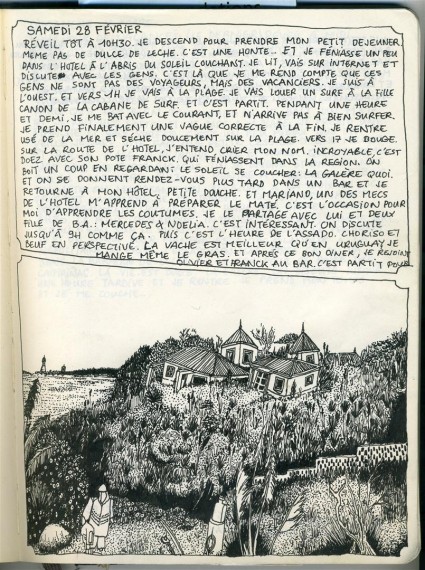 SAMEDI 28 FÉVRIER
RÉVEIL TÔT À 10H30. JE DESCEND POUR PRENDRE MON PETIT DEJEUNER.
MÊME PAS DE DULCE DE LECHE. C'EST UNE HONTE... ET JE FÉNIASSE UN PEU
DANS L'HOTEL À L'ABRIS DU SOLEIL COUCHANT. JE LIT, VAIS SUR INTERNET ET
DISCUTE AVEC LES GENS. C'EST LÀ QUE JE ME REND COMPTE QUE CES
GENS NE SONT PAS DES VOYAGEURS, MAIS DES VACANCIERS. JE SUIS À
L'OUEST. ET VERS 14H JE VAIS À LA PLAGE. JE VAIS LOUER UN SURF À LA FILLE
CANON DE LA CABANE DE SURF. ET C'EST PARTIT. PENDANT UNE HEURE
ET DEMI, JE ME BAT AVEC LE COURANT, ET N'ARRIVE PAS À BIEN SURFER.
JE PREND FINALEMENT UNE VAGUE CORRECTE À LA FIN. JE RENTRE
USÉ DE LA MER ET SÉCHE DOUCEMENT SUR LA PLAGE. VERS 17 JE BOUGE.
SUR LA ROUTE DE L'HOTEL, J'ENTEND CRIER MON NOM. INCROYABLE, C'EST
DOEZ AVEC SON POTE FRANCK. QUI FÉNIASSENT DANS LA REGION. ON
BOIT UN COUP EN REGARDANT LE SOLEIL SE COUCHER: LA GALÈRE QUOI.
ET ON SE DONNENT RENDEZ-VOUS PLUS TARD DANS UN BAR ET JE
RETOURNE À MON HÔTEL, PETITE DOUCHE. ET MARIANO, UN DES MECS
DE L'HOTEL M'APPREND À PRÉPARER LE MATE. C'EST L'OCCASION POUR
MOI D'APPRENDRE LES COUTUMES. JE LE PARTAGE AVEC LUI ET DEUX
FILLE DE B.A.: MERCEDES & NOELIA. C'EST INTÉRESSANT. ON DISCUTE
JUSQU'À 9H COMME ÇA. PUIS C'EST L'HEURE DE L'ASSADO. CHORISO ET
BŒUF EN PERSPECTIVE. LA VACHE EST MEILLEUR QU'EN URUGUAY JE
MANGE MÊME LE GRAS. ET APRÈS CE BON DINER, JE REJOINT
OLIVIER ET FRANCK AU BAR. C'EST PARTIT POUR